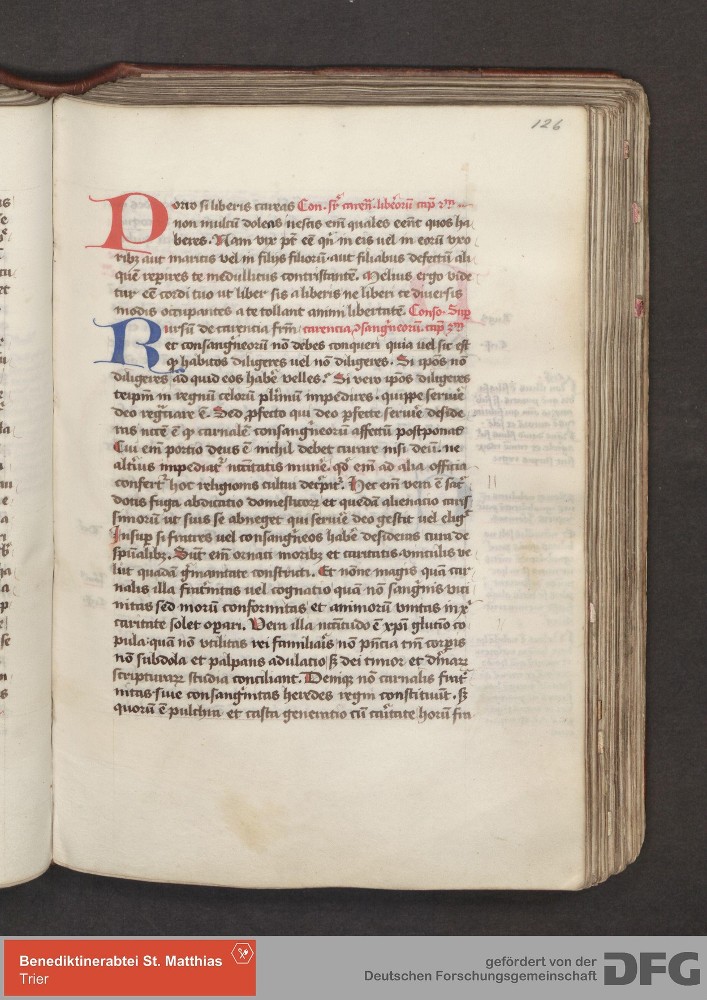 126
Porro si liberis careas Con. sr̄ caren̄. liberorū cap̄
non multū doleas nescis em̄ quales eēnt quos ha
beres. Nam vix pt̄ eē qn̄ in eis uel in eorū vxo
ribꝫ aut maritis vel in filijs filiorū aut filiabus defectū ali
quē reperires te medullitus contristantē. Melius ergo vide
tur eē cordi tuo ut liber sis a liberis ne liberi te diuersis
modis occupantes a te tollant animi libertatē. Conso. Sup̄
Rursū de carencia frm̄ carencia ꝯsangͥneorū. cap̄
et consangͥneorū nō debes conqueri quia uel sic est
ꝙ habitos diligeres uel nō diligeres. Si ip̄os nō
diligeres ad quid eos habē velles. Si vero ip̄os diligeres
teip̄m in regnū celorū plimū impedires. quippe seruire
deo regͣciare ē. Sed ꝓfecto qui deo perfecte seruire deside
ras nccē ē ꝙ carnalē consangͥneorū affectū postponas
Cui em̄ portio deus ē nichil debet curare nisi deū. ne
altͥius impediatͬ nccitatis munē. qd̄ em̄ ad alia officia
confertͬ hoc religionis cultui decerpitͬ. Hec em̄ vera ē sac̄
dotis fuga abdicatio domesticoꝝ et quedā alienacio caris
simorū ut suis se abneget qui seruire deo gestit uel eligͭ
Insup si fratres uel consangͥneos habē desideras cura de
sp̄ualibꝫ. Sūt em̄ ornati moribꝫ et caritatis vinculis ve
lut quadā gͤmanitate constricti. Et nōne magis quā car
nalis illa fratͤnitas uel cognatio quā nō sangͥnis vici
nitas sed morū conformitas et animorū vnitas in xͦ
caritate solet operari. Vera illa nccitudo ē xp̄i glutīo co
pula. quā nō vtilitas rei familiaris nō pn̄cia tm̄ corpis
nō subdola et palpans adulatio sꝫ dei timor et diuinaꝝ
scripturaꝝ studia conciliant. Deniqꝫ nō carnalis fratͤ
nitas siue consangͥnitas heredes regni constituūt. sꝫ
quorū ē pulchra et casta generatio cū caritate horū fra
Benediktinerabtei St. Matthias
Trier
gefördert von der
Deutschen Forschungsgemeinschaft
DFG